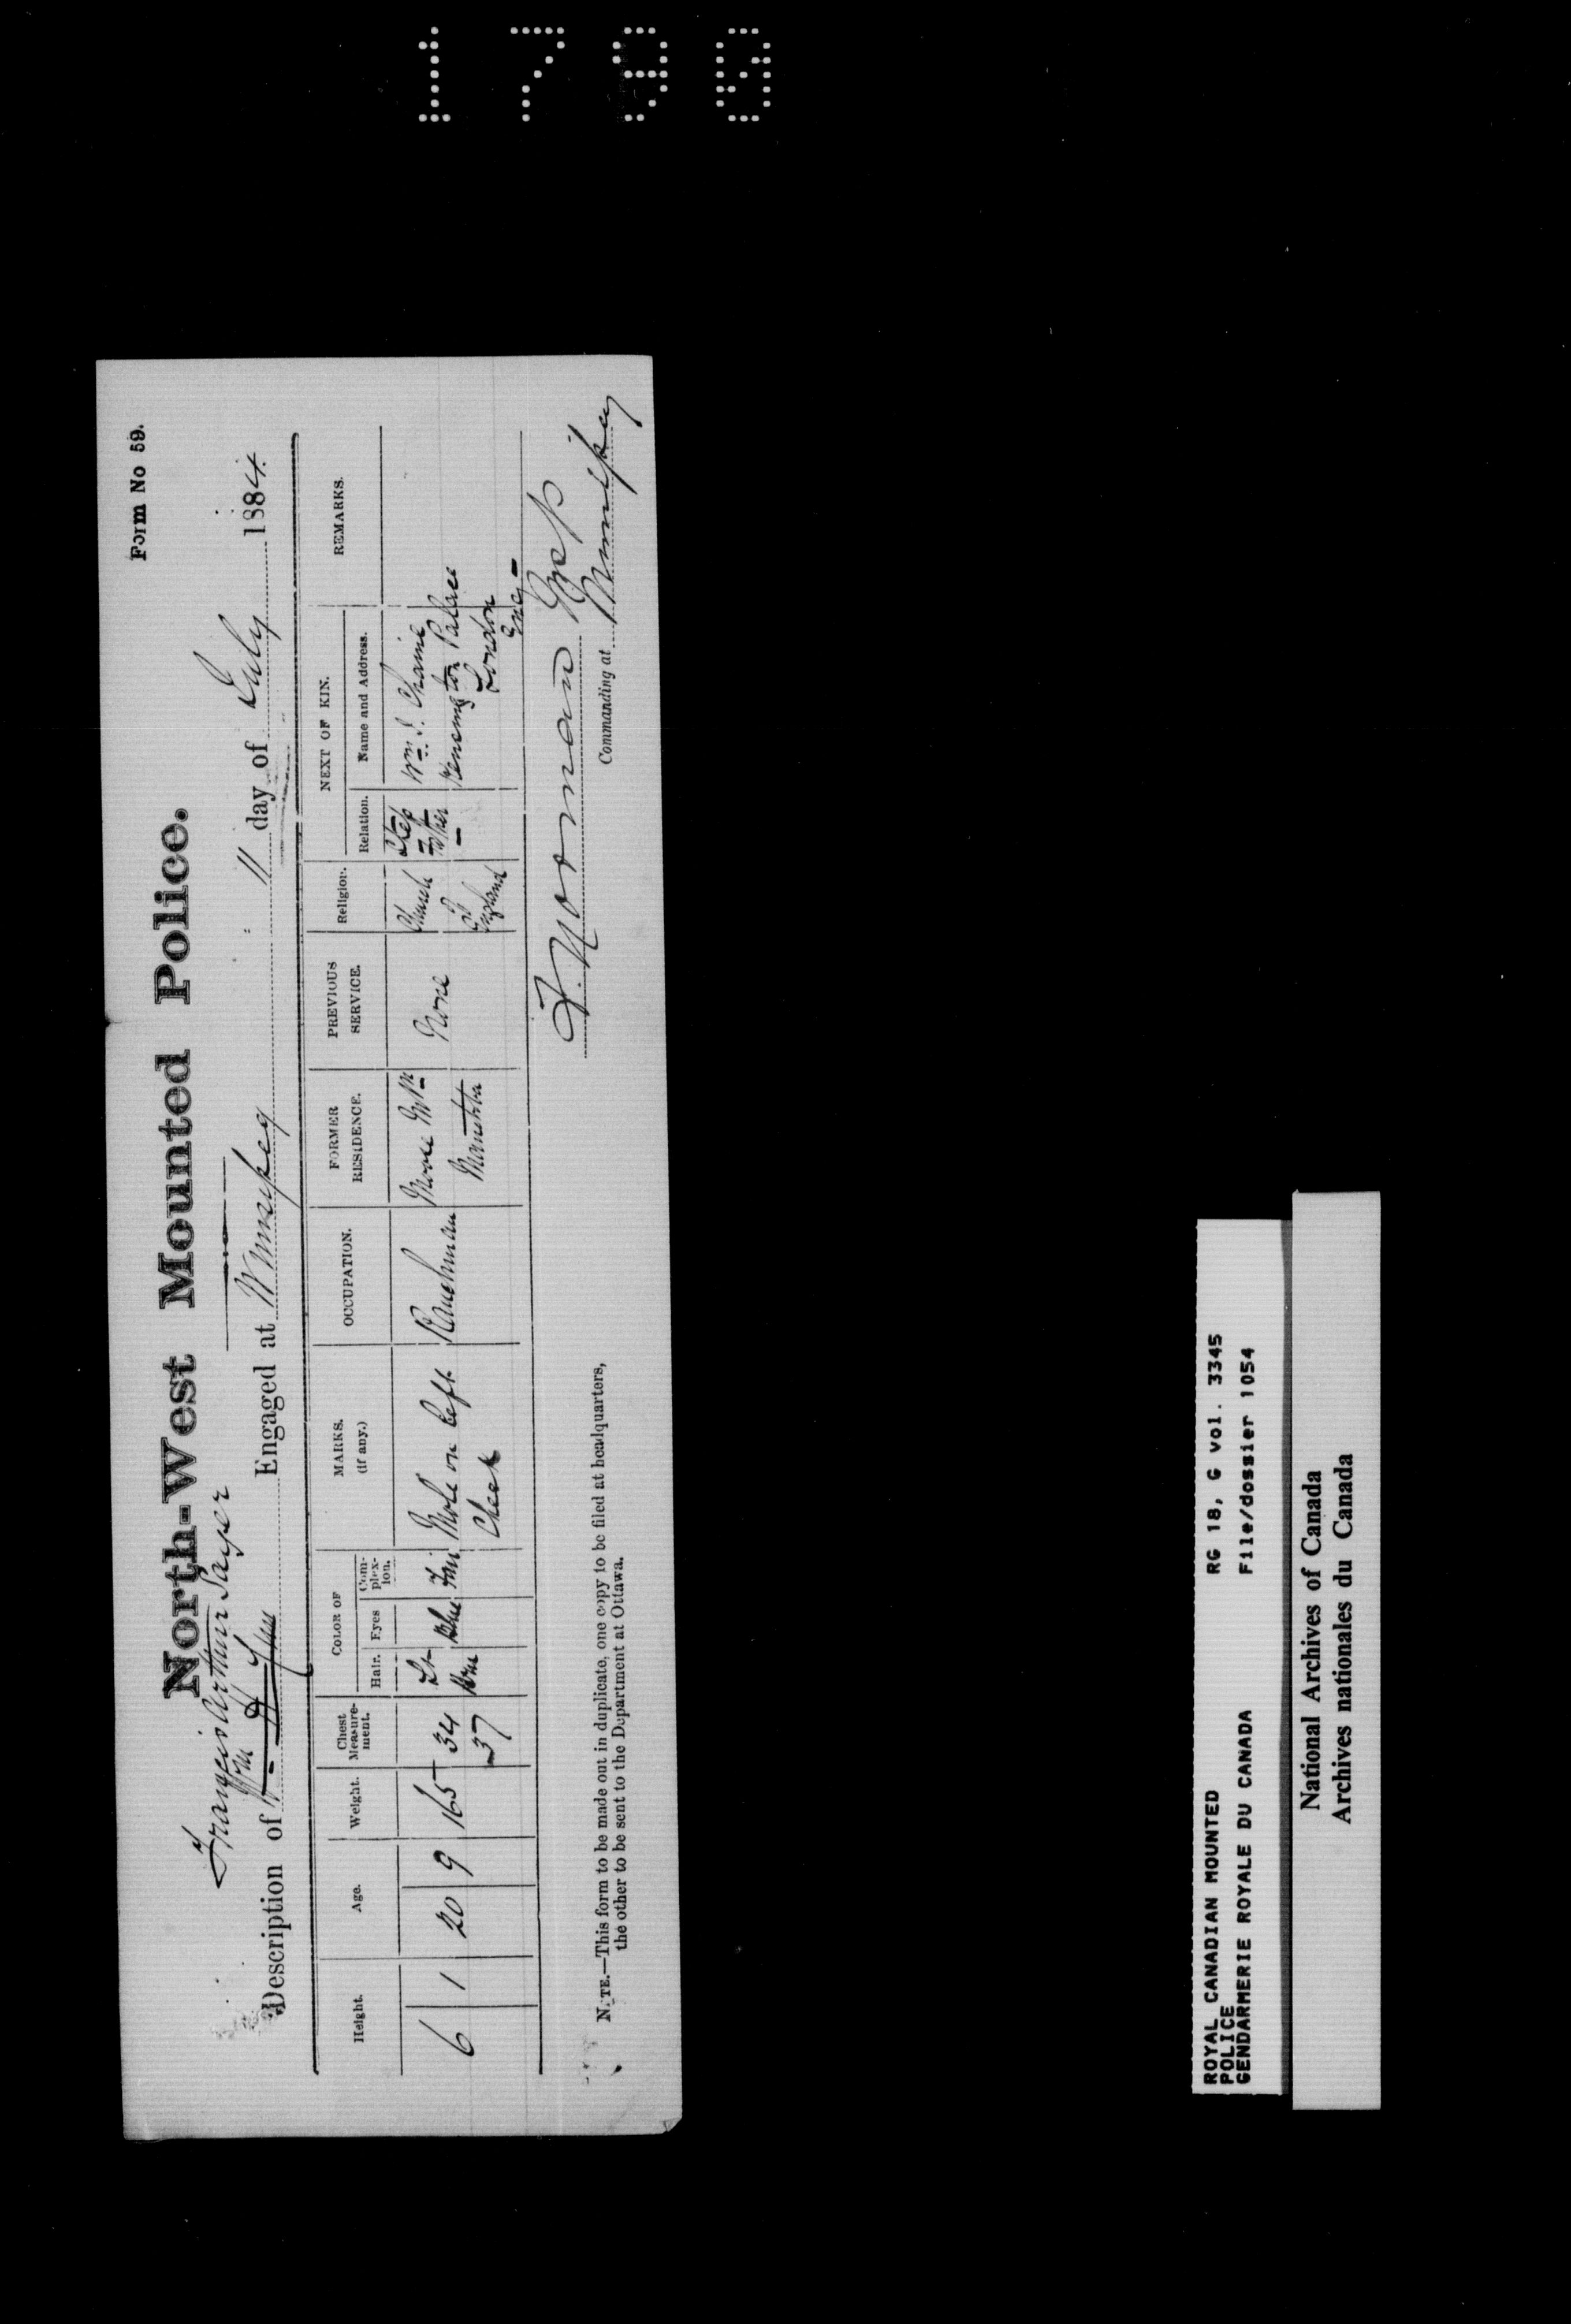 1780
Form No 59.
North-West Mounted Police.
Francis Arthur Sayer
Description of Wm Engaged at Winnipeg 11 day of July 1884.
Height. Age. Weight. Chest Measure-ment. COLOR OF Hair. Eyes Com-plex-ion. MARKS. (if any.) OCCUPATION. FORMER RESIDENCE. PREVIOUS SERVICE. Religion. NEXT OF KIN. Relation. Name and Address. REMARKS.
6 1 20 9 165 34 Lt Blue Fair Mole on left Ranchman Moose Mtn None Church Step Wm. S. Chaine
37 Brn Cheek Manitoba of Father Kensington Palace
England London
Eng-
F. Norman Insp
Commanding at Winnipeg
NOTE.—This form to be made out in duplicate, one copy to be filed at headquarters,
the other to be sent to the Department at Ottawa.
ROYAL CANADIAN MOUNTED RG 18, G vol. 3345
POLICE
GENDARMERIE ROYALE DU CANADA File/dossier 1054
National Archives of Canada
Archives nationales du Canada